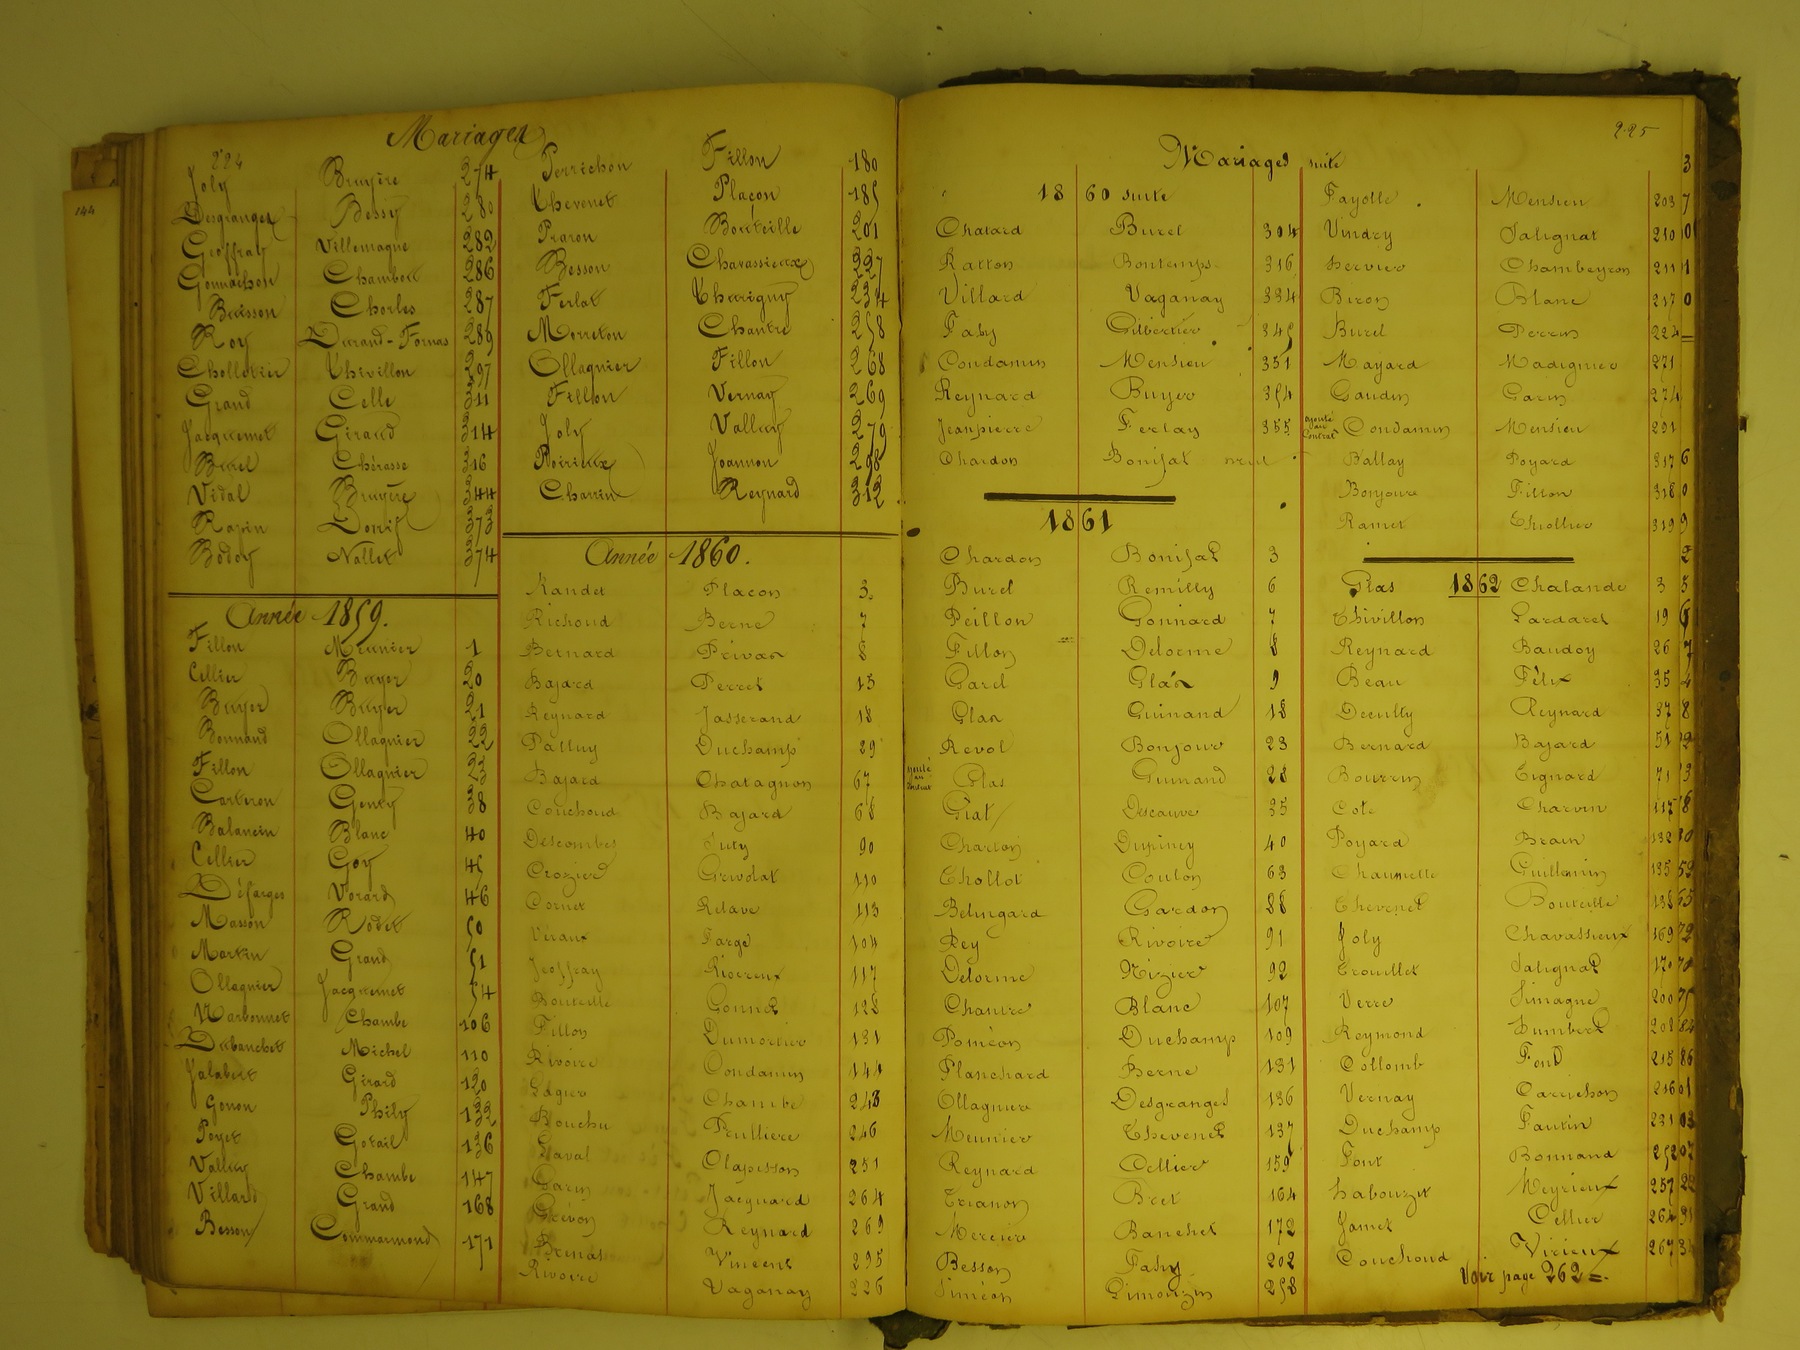 224
Mariages
Joly Bruyère 274
Desgranges Bessy 280
Geoffray Villemagne 282
Gonnachon Chambon 286
Buisson Chorles 287
Roy Durand-Fornas 289
Cholletier Thivillon 297
Grand Celle 311
Jacquemet Giraud 314
Burel Chérasse 316
Vidal Bruyère 344
Rapin Dorrif 373
Bodoy Nallet 374
Année 1859.
Fillon Meunier 1
Cellier Buyer 20
Buyer Buyer 21
Bonnand Ollagnier 22
Fillon Ollagnier
Carteron Genty 38
Balancin Blanc 40
Cellier Goy 45
Défarges Vorard 46
Masson Rodet 50
Martin Grand 51
Ollagnier Jacquemet 54
Narbonnet Chambe 106
Dubanchet Michel 110
Jalabert Girard 120
Gonon Phily 132
Poyet Gotail 136
Vallier Chambe 147
Villard Grand 168
Besson Commarmond 171
Perrichon Fillon 180
Thevenet Plaçon 185
Praron Bouteille 201
Besson Chavassieux 227
Ferlat Thurigny 234
Morreton Chantre 258
Ollagnier Fillon 268
Fillon Vernay 269
Joly Valluy 279
Poirieux Joannon 298
Charrin Reynard 312
Année 1860.
Randet Placon 3
Richoud Berne 7
Bernard Privas 8
Bajard Perret 15
Reynard Jasserand 18
Palluy Duchamp 29
Bajard Chatagnon 67
Couchoud Bajard 68
Descombes Juty 90
Crozier Grivolat 110
Cornet Relave 113
Véraux Farge 104
Jeoffray Rivereux 117
Bouteille Gonnet 128
Fillon Dumortier 131
Rivoire Condamin 144
Lagier Chambe 243
Bouchu Peulliere 246
Laval Clapisson 251
Garin Jacquard 264
Grévon Reynard 269
Brenas Vincent 295
Rivoire Vaganay 226
225
Mariages suite
1860 suite
Chatard Burel 304
Ratton Bontemps 316
Villard Vaganay 334
Fahy Gilbertier 345
Condamin Mensieu 351
Reynard Buyer 354
Jeanpierre Ferlay 355
Chardon Bonifat
1861
Chardon Bonifat 3
Burel Remilly 6
Peillon Gonnard 7
Fillon Delorme 8
Garel Glas 9
Glas Guinand 18
Revol Bonjour 23
ajouté au contrat Glas Guinand 28
Giat Descauve 35
Charlon Dupiney 40
Thollot Coulon 63
Belingard Gardon 88
Rey Rivoire 91
Delorme Nizier 92
Chantre Blanc 107
Poméon Duchamp 109
Planchard Berne 131
Ollagnier Desgranges 136
Meunier Thevenet 137
Reynard Cellier 159
Trianon Bret 164
Mercier Banchet 172
Besson Fahy 202
Siméon Limouzin 258
Fayolle Mensieu 203
Vindry Salignat 210
hervier Chambeyron 211
Biron Blanc 217
Burel Perrin 224
Mayard Madignier 271
Gaudin Garin 274
ajouté au Contrat Condamin Mensieu 291
Ballay Poyard 317
Bonjour Fillon 318
Ramet Thollier 319
1862
Glas Chalande 3
Thivillon Lardaret 19
Reynard Baudoy 26
Beau Félix 35
Decully Reynard 37
Bernard Bajard 51
Bourrin Tignard 71
Cote Charvin 117
Poyard Brain 132
Chaumette Guillemin 135
Thevenet Bouteille 138
Joly Chavassieux 169
Trouillet Salignat 170
Verre Simagne 200
Reymond humbert 208
Collomb Fond 215
Vernay Carrichon 216
Duchamp Fautin 231
Font Bonnand 252
habouzit Meyrieux 257
Jamet Cellier 264
Couchoud Virieux 267
Voir page 262
144